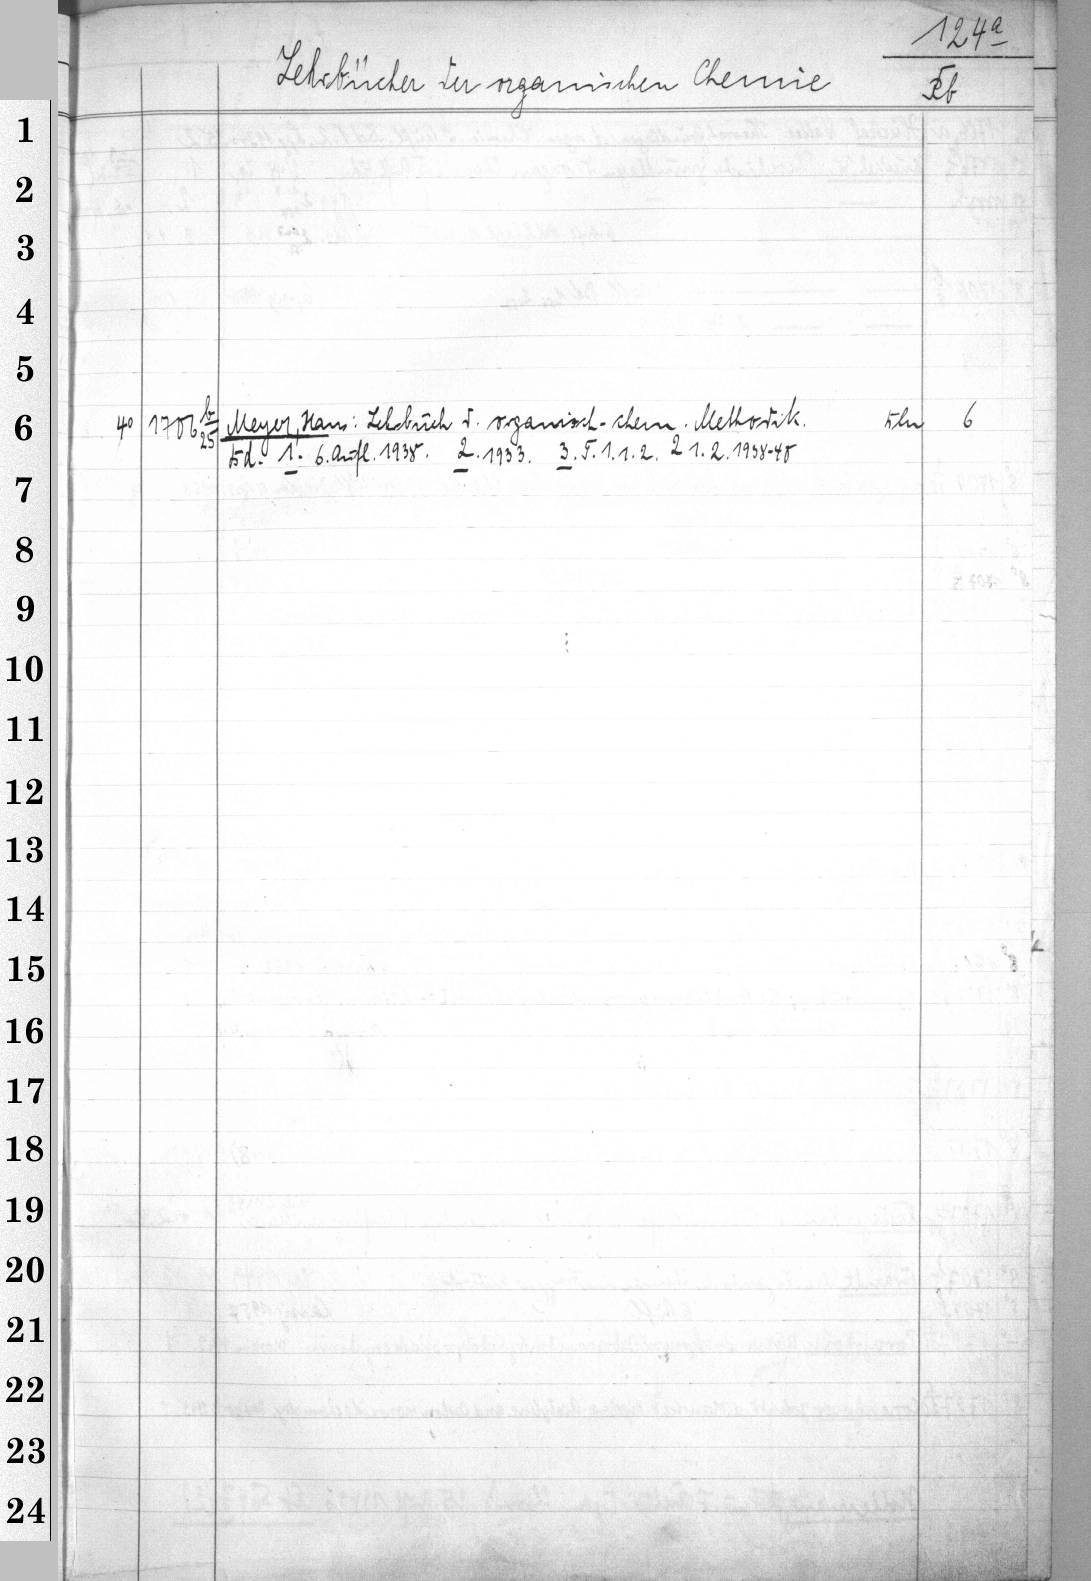 124a
Lehrbücher der organischen Chemie
Xb
1
2
3
4
5
6 4° 1706 b/25 Meyer, Hans: Lehrbuch d. organisch-chem. Methodik. Wien 6
Bd. 1. 6. Aufl. 1938. 2. 1933. 3. T. 1. 1. 2. 2 1. 2. 1938-40
7
8
9
10
11
12
13
14
15
16
17
18
19
20
21
22
23
24